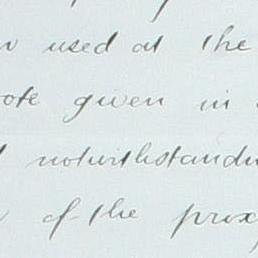 used at the
given in
notwithstandin
of the prox